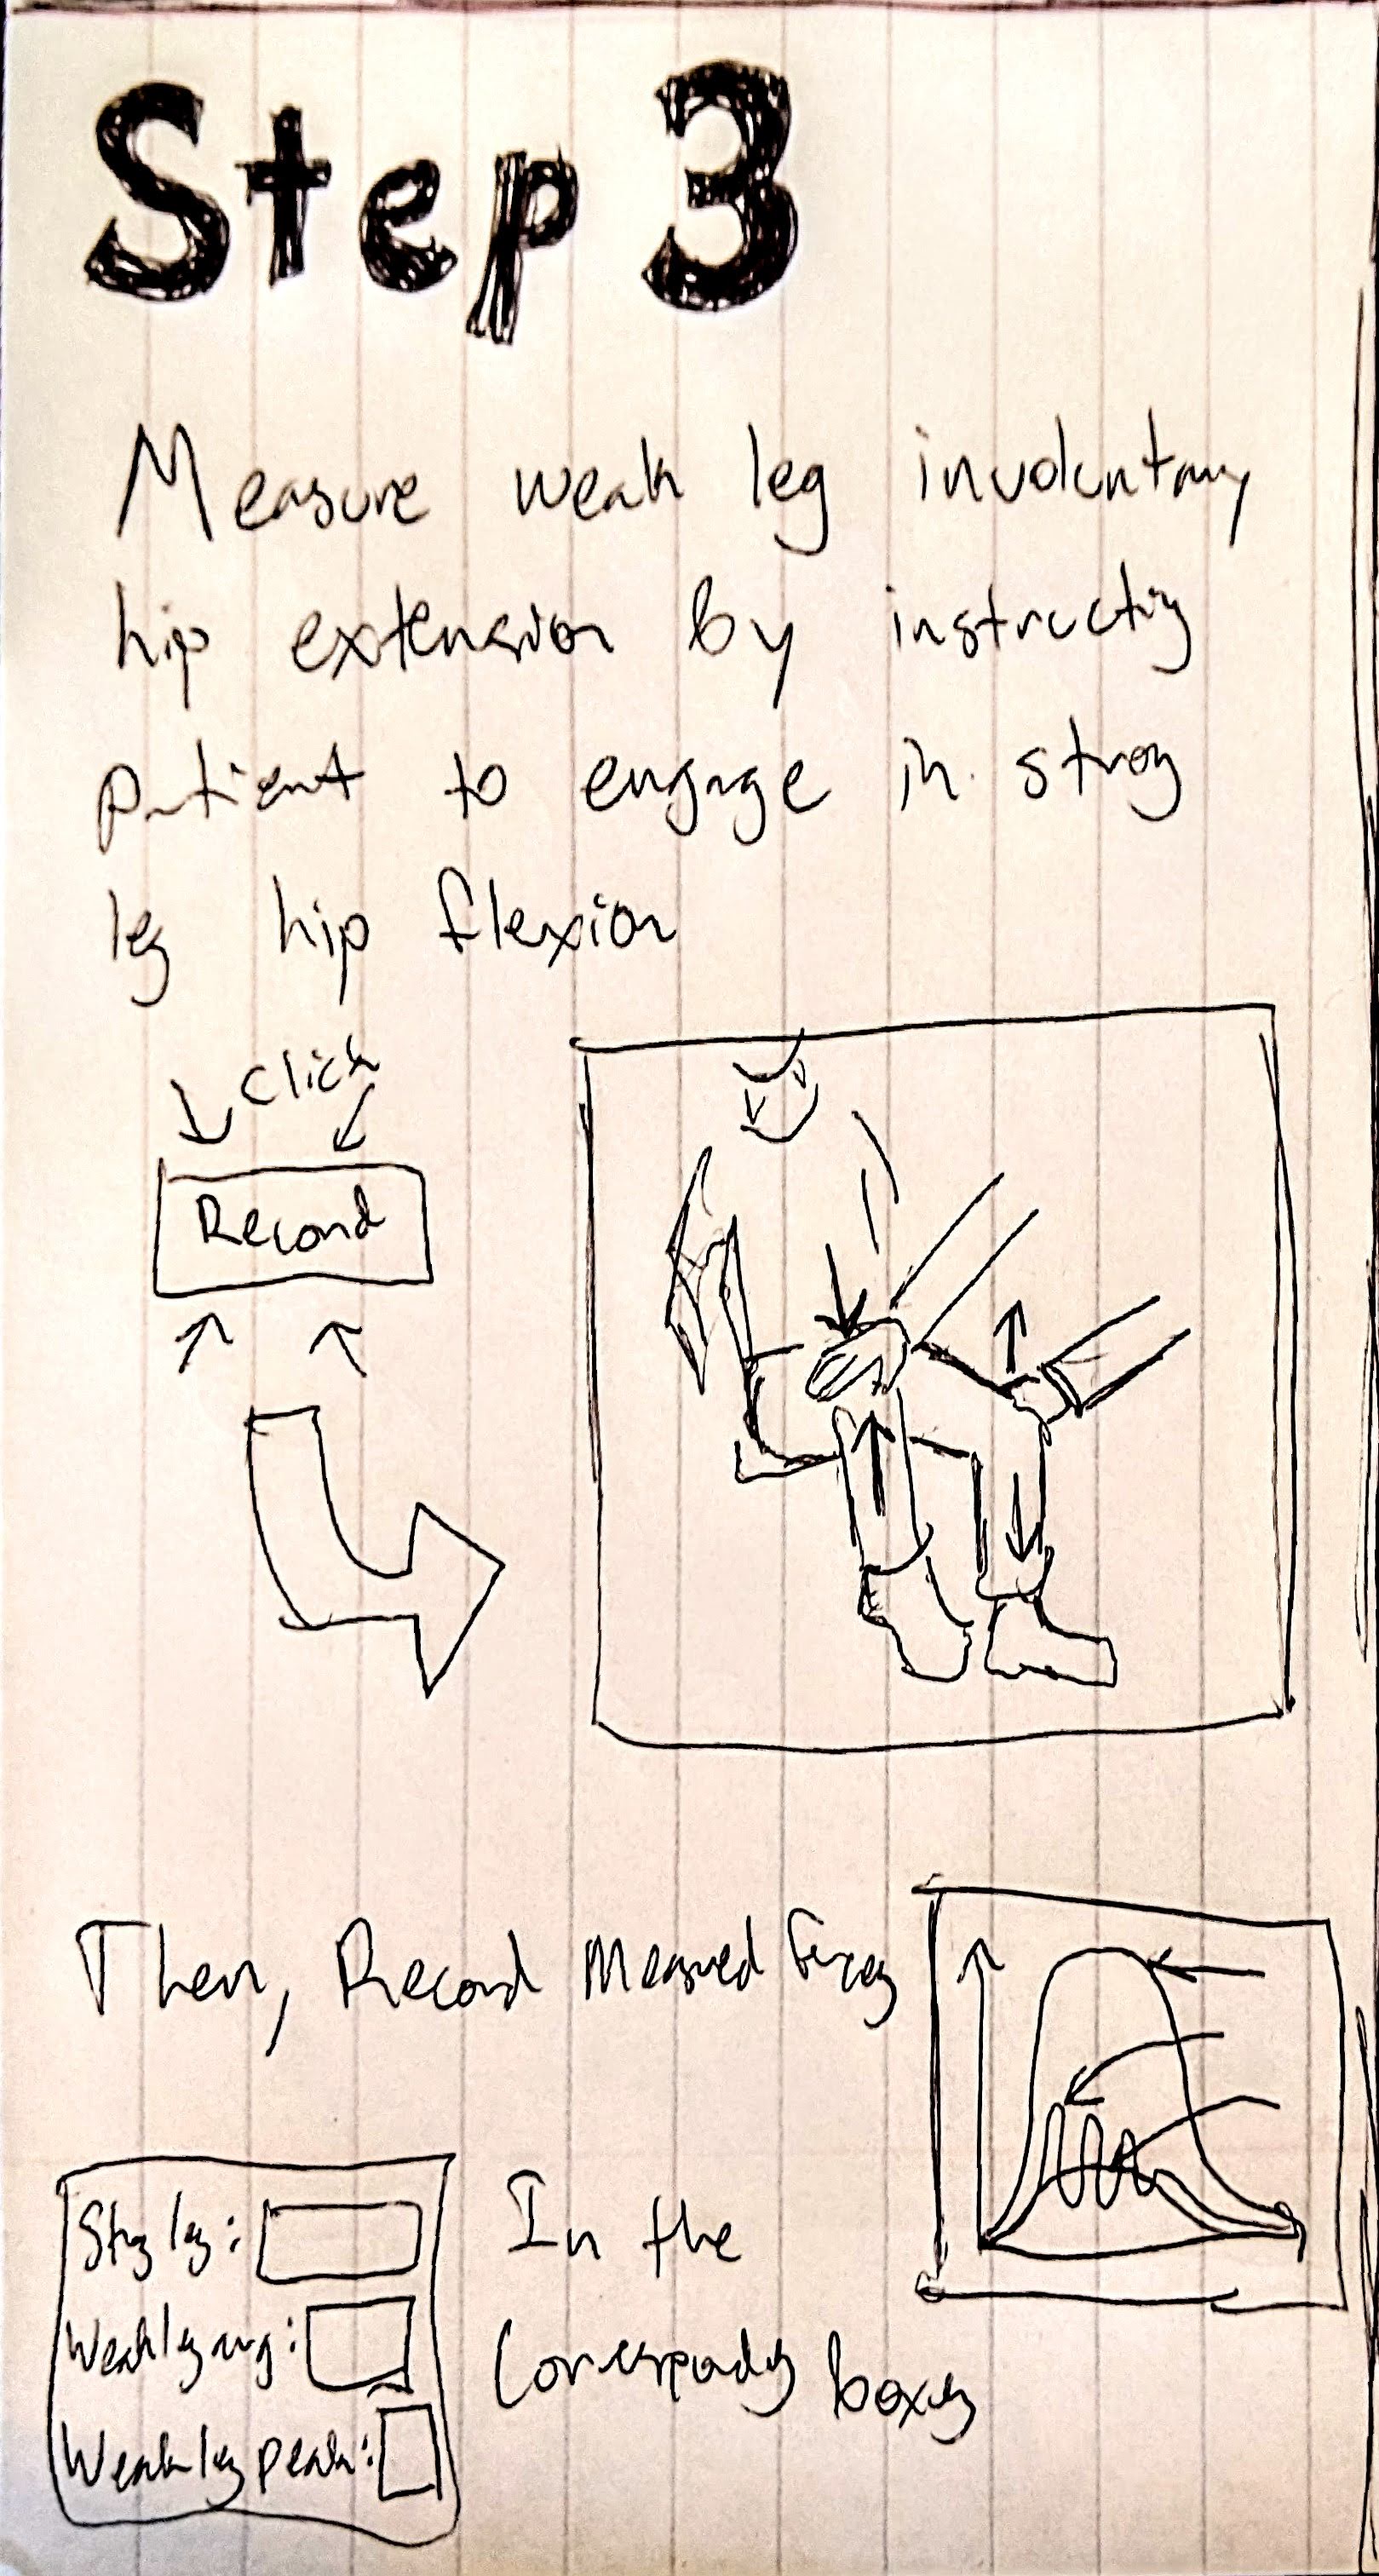 Step 3
Measure weak leg involuntary
hip extension by instructing
patient to engage in strong
leg hip flexion
Click
Record
Then, Record Measured forces
Strong leg:
Weak leg avg:
Weak leg peak:
In the
Corresponding boxes